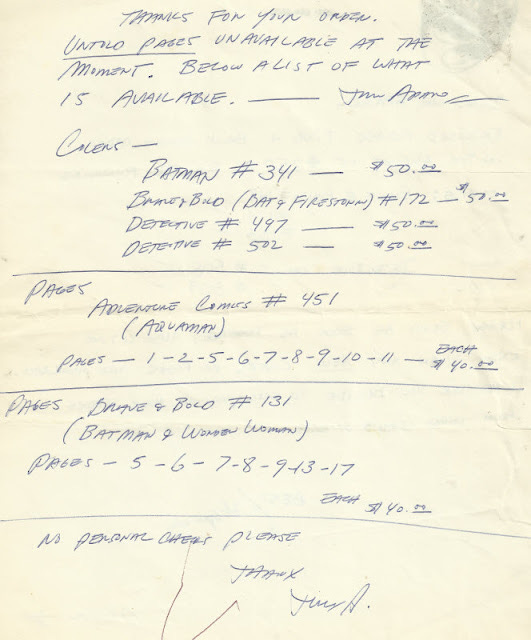 THANKS FOR YOUR ORDER.
UNTOLD PAGES UNAVAILABLE AT THE
MOMENT. BELOW A LIST OF WHAT
IS AVAILABLE. — Jim Aparo
COVERS —
BATMAN # 341 — $50.00
BRAVE & BOLD (BAT & FIRESTORM) # 172 — $50.00
DETECTIVE # 497 — $50.00
DETECTIVE # 502 — $50.00
PAGES
ADVENTURE COMICS # 451
(AQUAMAN)
PAGES — 1-2-5-6-7-8-9-10-11 — EACH $40.00
PAGES BRAVE & BOLD # 131
(BATMAN & WONDER WOMAN)
PAGES — 5-6-7-8-9-13-17
EACH $40.00
NO PERSONAL CHECKS PLEASE
THANX
Jim A.